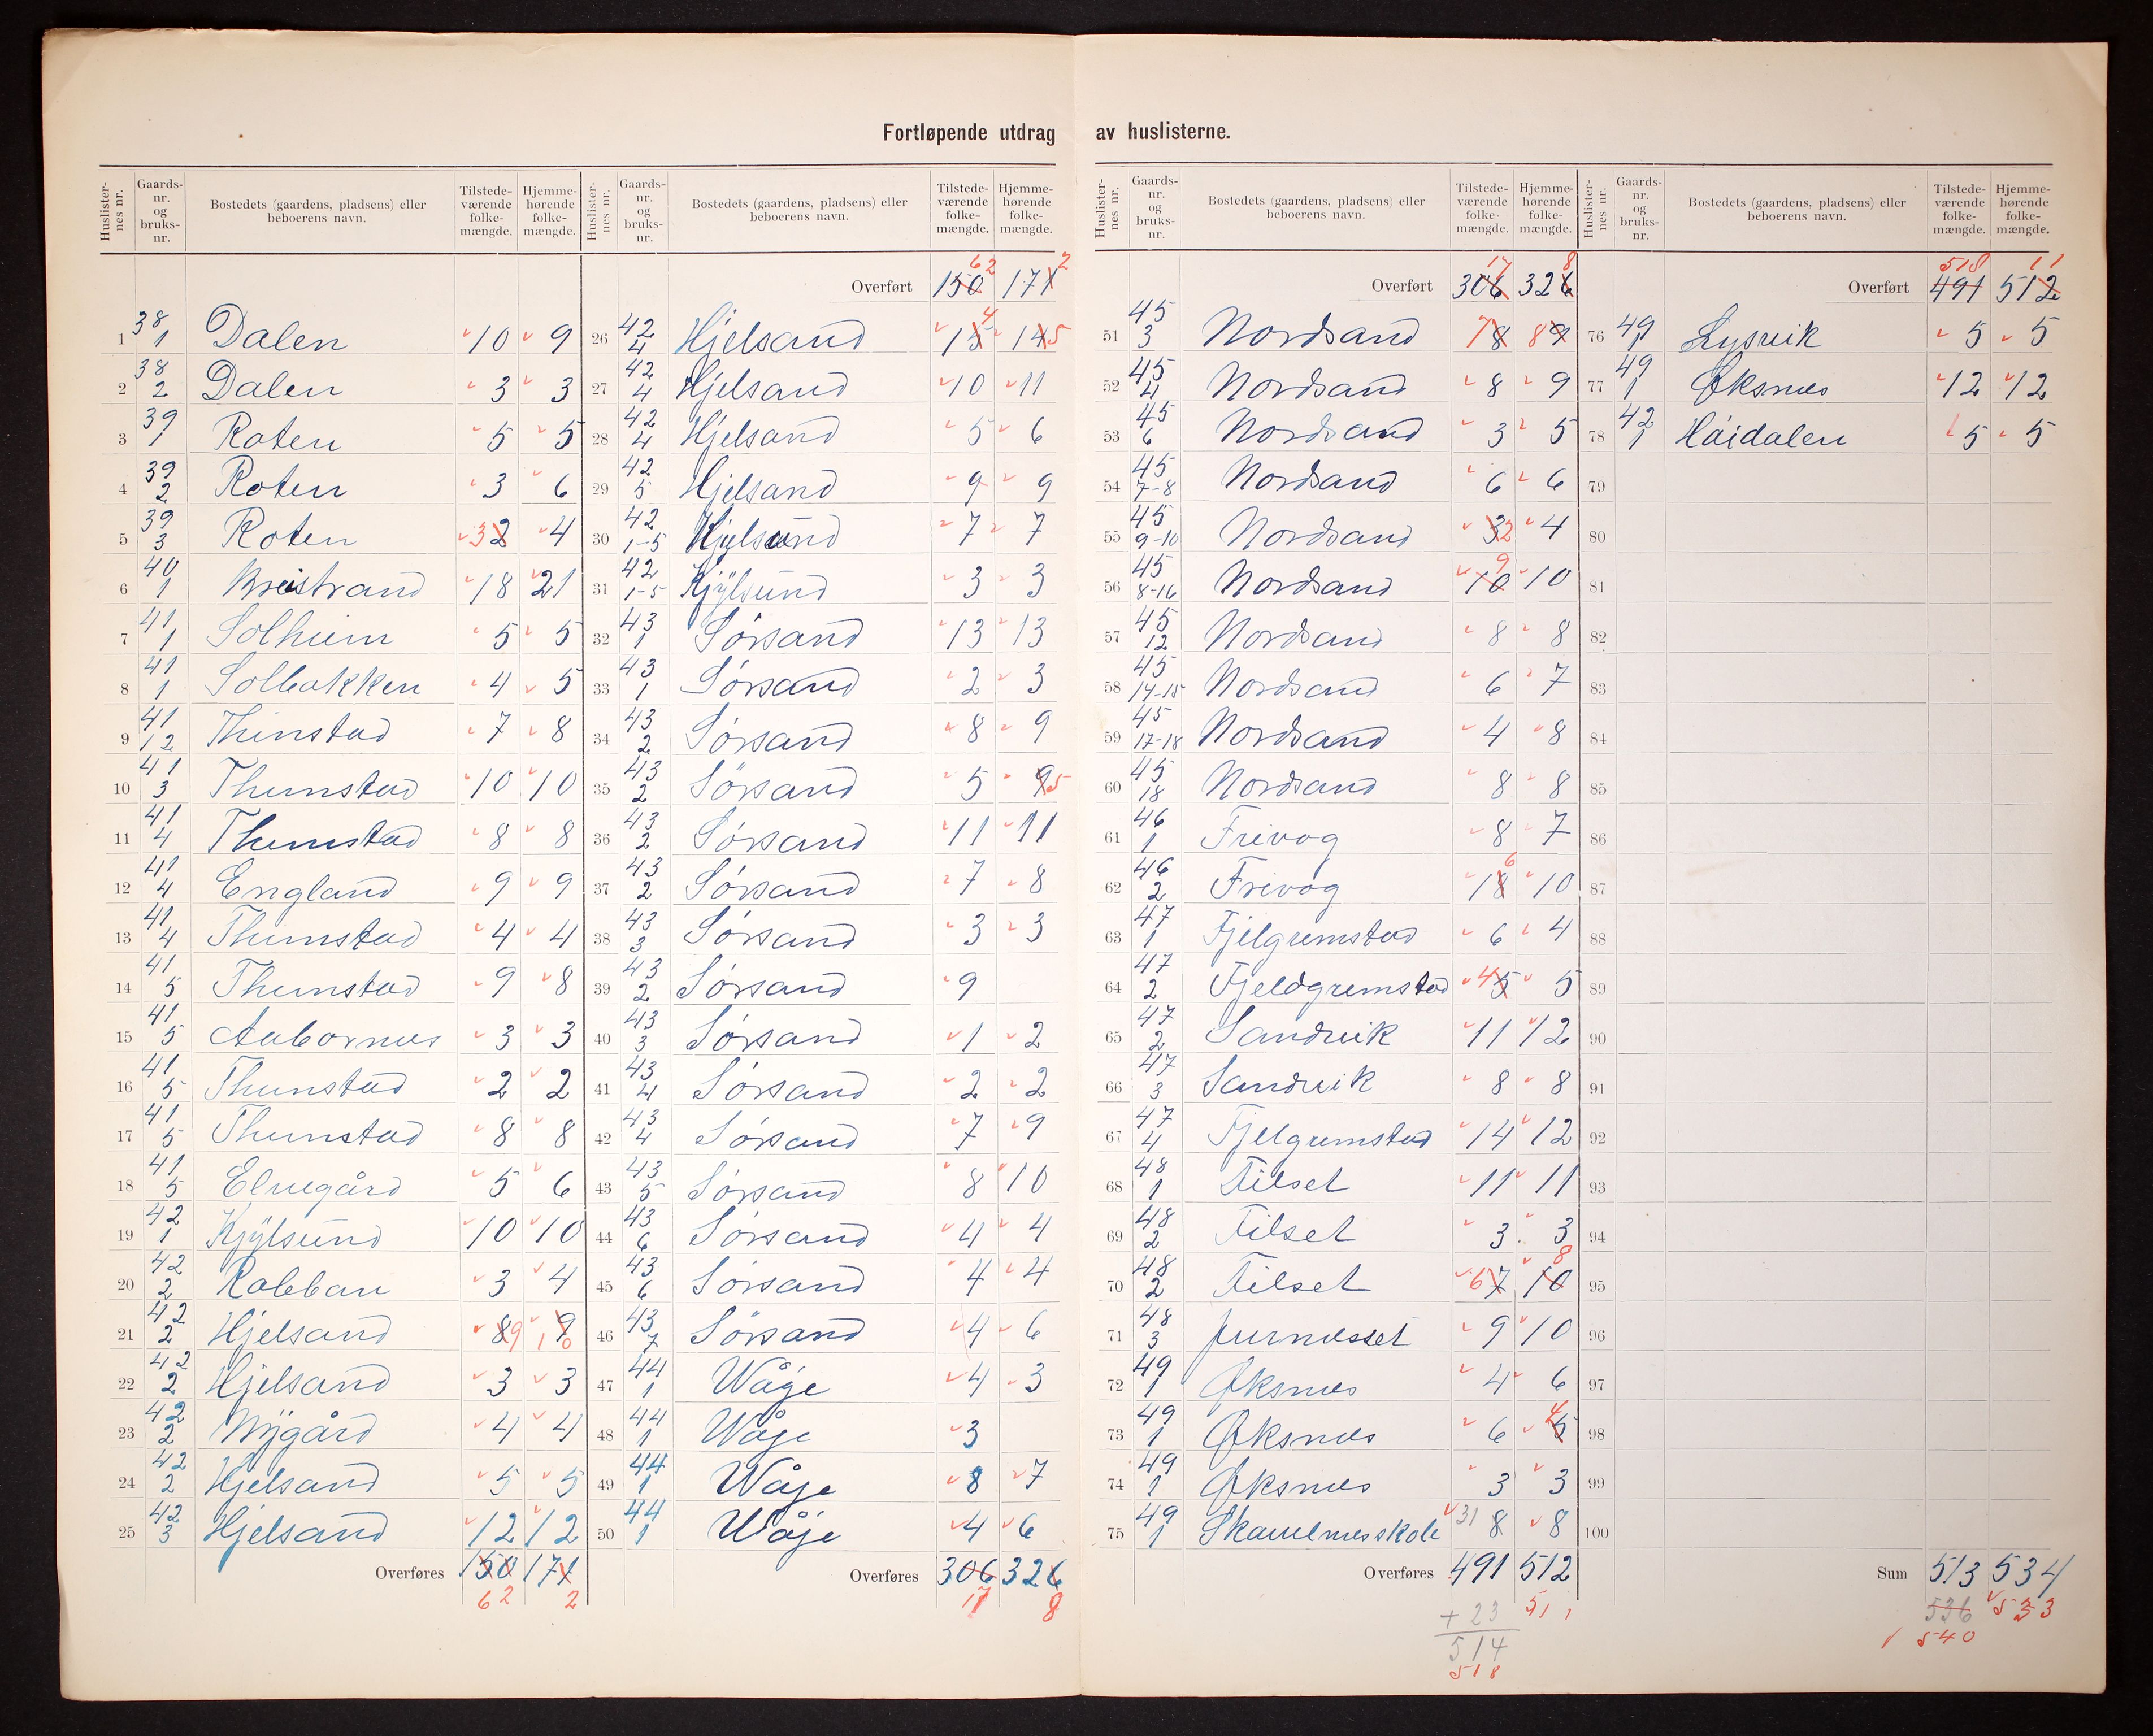 Fortløpende utdrag av huslisterne.
Huslisternes nr. Gaards-nr. og bruks-nr. Bostedets (gaardens, pladsens) eller beboerens navn. Tilstedeværende folkemængde. Hjemmehørende folkemængde.
1 38/1 Dalen 10 9
2 38/2 Dalen 3 3
3 39/1 Roten 5 5
4 39/2 Roten 3 6
5 39/3 Roten 3 2 4
6 40/1 Breistrand 18 21
7 41/1 Solheim 5 5
8 41/1 Solbakken 4 5
9 41/12 Thinstad 7 8
10 41/3 Thunstad 10 10
11 41/4 Thunstad 8 8
12 41/4 England 9 9
13 41/4 Thunstad 4 4
14 41/5 Thunstad 9 8
15 41/5 Aabornes 3 3
16 41/5 Thunstad 2 2
17 41/5 Thunstad 8 8
18 41/5 Elvegård 5 6
19 42/1 Kjÿlsund 10 10
20 42/2 Rabban 3 4
21 42/2 Hjelsand 8 9 9 10
22 42/2 Hjelsand 3 3
23 42/2 Nygård 4 4
24 42/2 Hjelsand 5 5
25 42/3 Hjelsand 12 12
Overføres 150 171
62 2
Huslisternes nr. Gaards-nr. og bruks-nr. Bostedets (gaardens, pladsens) eller beboerens navn. Tilstedeværende folkemængde. Hjemmehørende folkemængde.
62 2
Overført 150 171
26 42/4 Hjelsand 15 4 14 5
27 42/4 Hjelsand 10 11
28 42/4 Hjelsand 5 6
29 42/5 Hjelsand 9 9
30 42/1-5 Kjylsund 7 7
31 42/1-5 Kjÿlsund 3 3
32 43/1 Sørsand 13 13
33 43/1 Sørsand 2 3
34 43/2 Sørsand 8 9
35 43/2 Sørsand 5 9 5
36 43/2 Sørsand 11 11
37 43/2 Sørsand 7 8
38 43/3 Sørsand 3 3
39 43/2 Sørsand 9
40 43/3 Sørsand 1 2
41 43/4 Sørsand 2 2
42 43/4 Sørsand 7 9
43 43/5 Sørsand 8 10
44 43/6 Sørsand 4 4
45 43/6 Sørsand 4 4
46 43/7 Sørsand 4 6
47 44/1 Wåge 4 3
48 44/1 Wåje 3
49 44/1 Wåje 8 7
50 44/1 Wåje 4 6
Overføres 306 326
17 8
Huslisternes nr. Gaards-nr. og bruks-nr. Bostedets (gaardens, pladsens) eller beboerens navn. Tilstedeværende folkemængde. Hjemmehørende folkemængde.
17 8
Overført 306 326
51 45/3 Nordsand 7 8 8 9
52 45/4 Nordsand 8 9
53 45/6 Nordsand 3 5
54 45/7-8 Nordsand 6 6
55 45/9-10 Nordsand 3 2 4
56 45/8-16 Nordsand 10 9 10
57 45/12 Nordsand 8 8
58 45/14-15 Nordsand 6 7
59 45/17-18 Nordsand 4 8
60 45/18 Nordsand 8 8
61 46/1 Frivog 8 7
62 46/2 Frivog 18 6 10
63 47/1 Fjelgremstad 6 4
64 47/2 Fjeldgremstad 4 5 5
65 47/2 Sandvik 11 12
66 47/3 Sandvik 8 8
67 47/4 Fjelgremstad 14 12
68 48/1 Tilset 11 11
69 48/2 Tilset 3 3
70 48/2 Tilset 6 7 10 8
71 48/3 Jurnesset 9 10
72 49/1 Øksnes 4 6
73 49/1 Øksnes 6 5 4
74 49/1 Øksnes 3 3
75 49/1 Skavlnesskole 31 8 8
Overføres 491 512
+ 23 511
514
518
Huslisternes nr. Gaards-nr. og bruks-nr. Bostedets (gaardens, pladsens) eller beboerens navn. Tilstedeværende folkemængde. Hjemmehørende folkemængde.
518 11
Overført 491 512
76 49/1 Lysvik 5 5
77 49/1 Øksnes 12 12
78 42/1 Håidalen 5 5
79
80
81
82
83
84
85
86
87
88
89
90
91
92
93
94
95
96
97
98
99
100
Sum 513 534
536 533
540